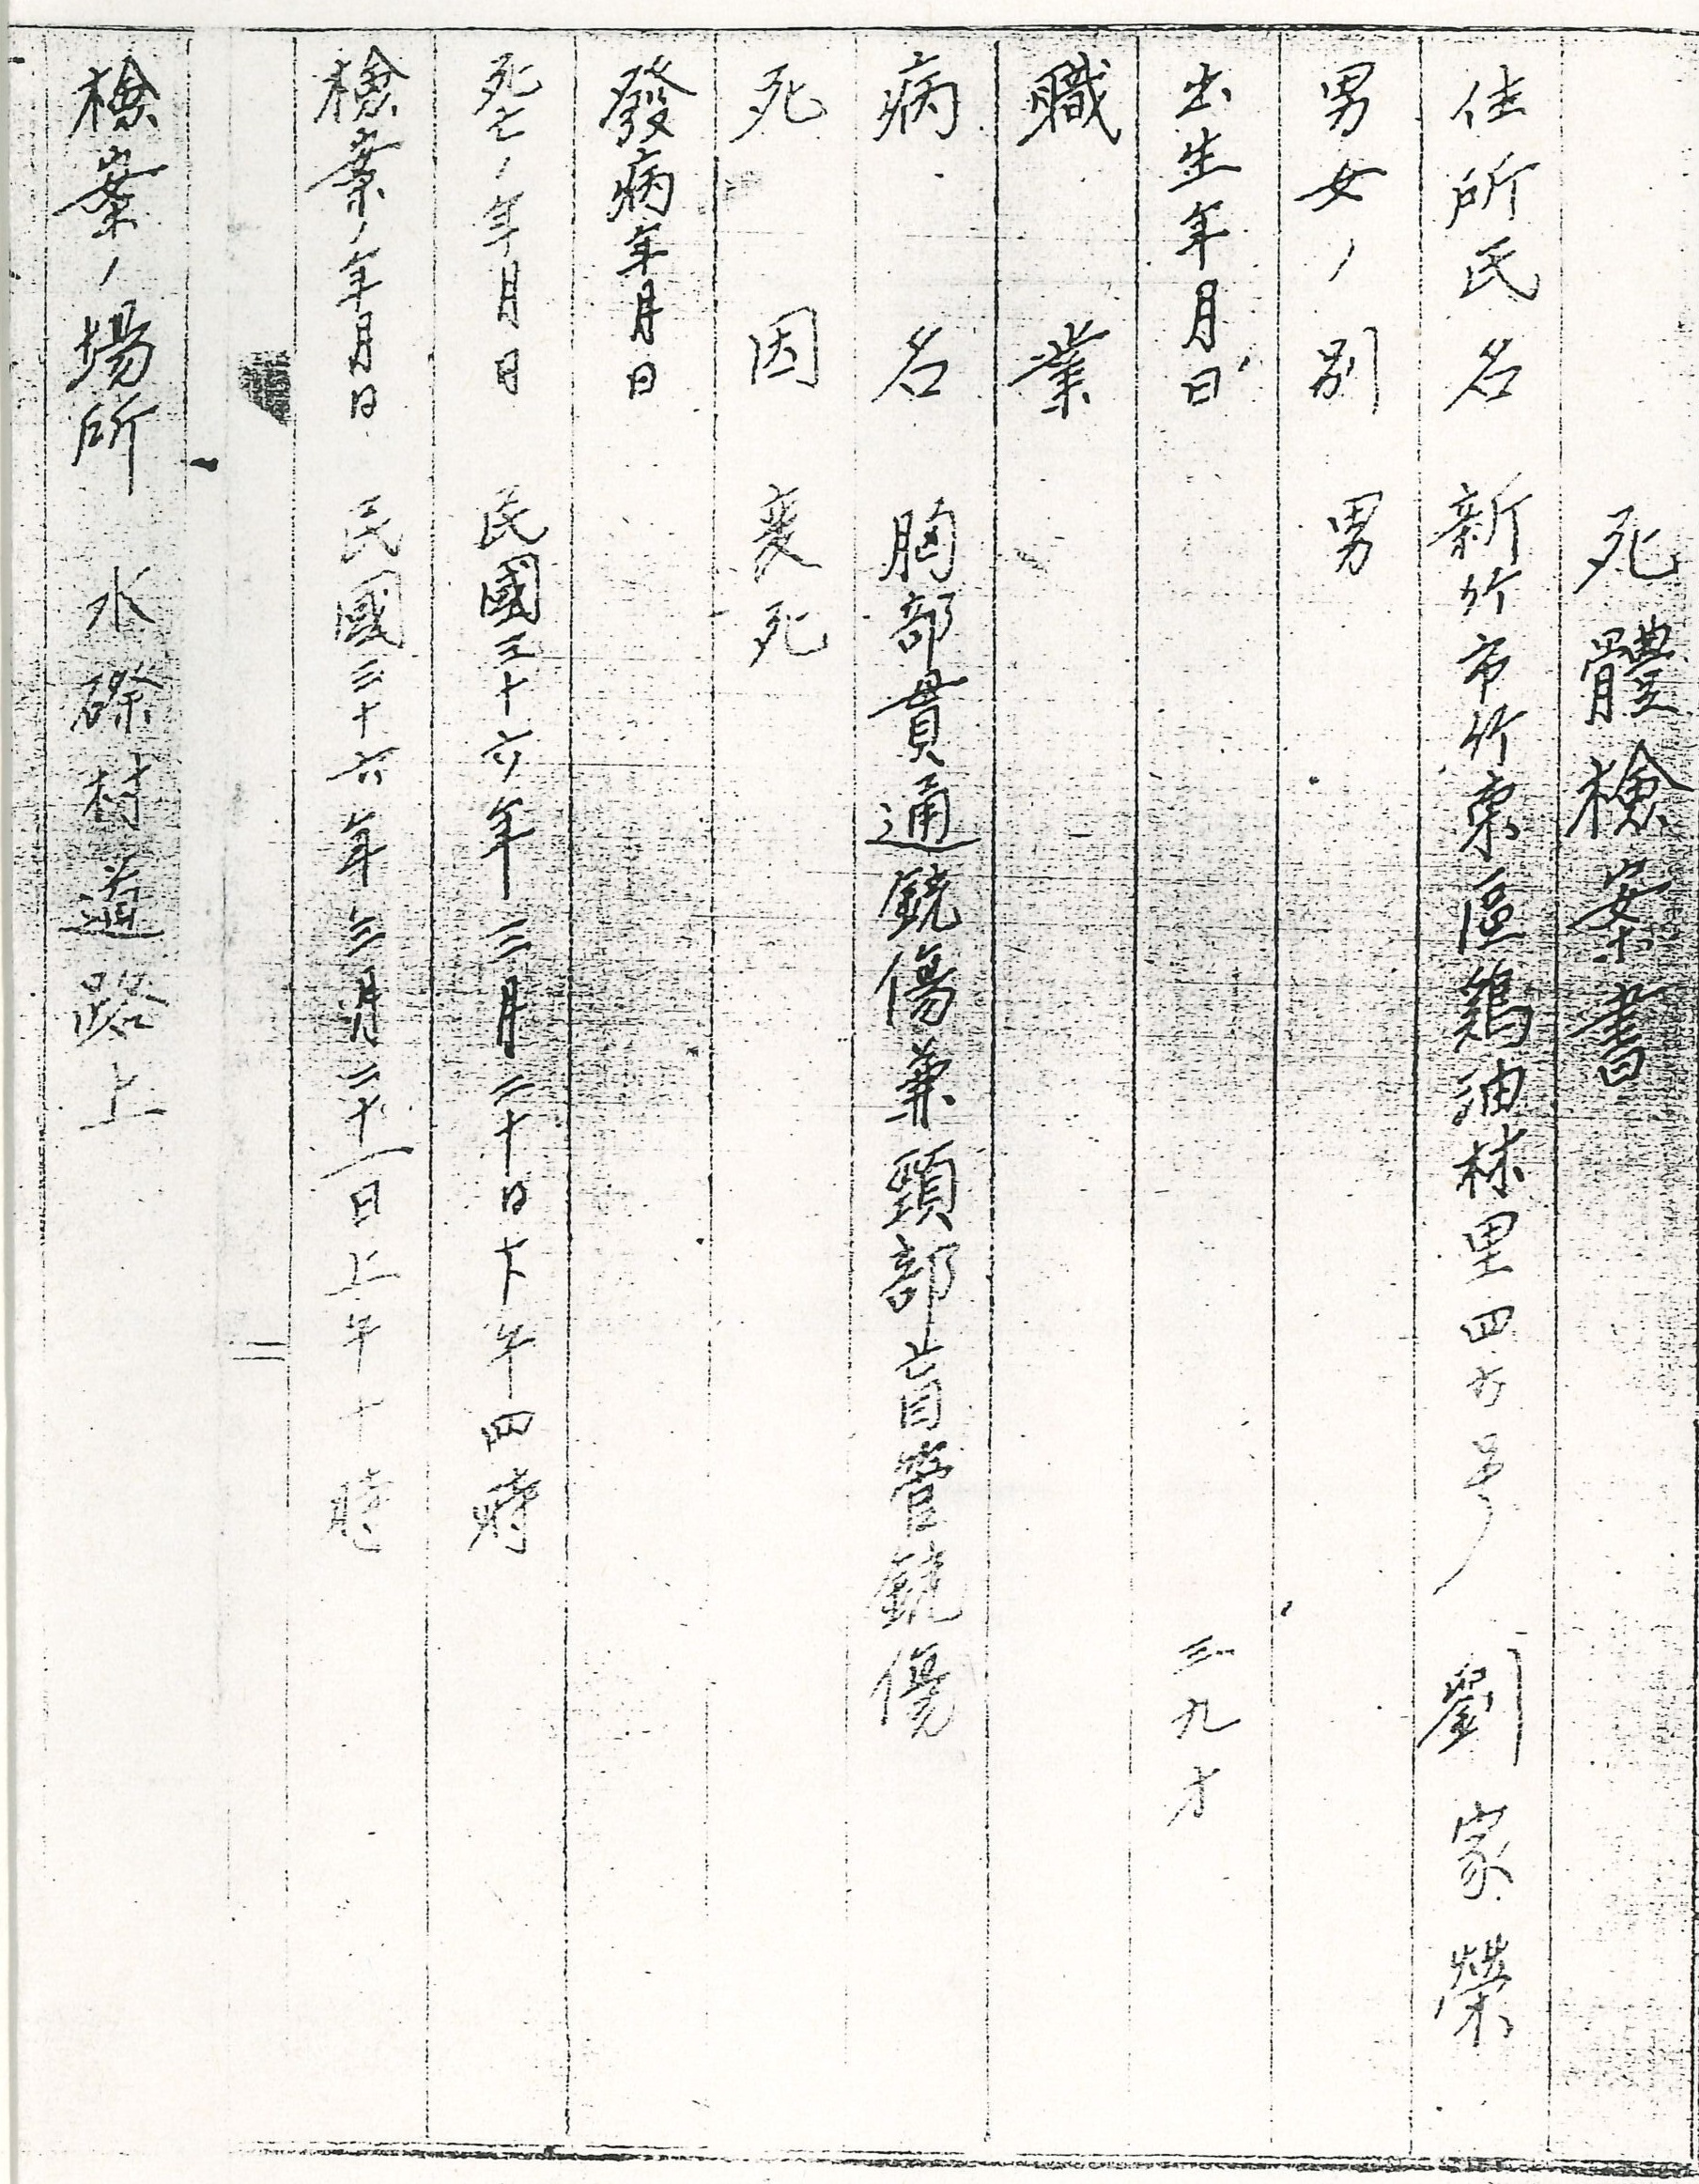 死體檢案書
住所氏名 新竹市竹東區鷄油林里四六号 劉家榮
男女ノ別 男
出生年月日 三九才
職業
病名 胸部貫通銃傷兼頸部盲管銃傷
死因 変死
發病年月日
死亡ノ年月日 民國三十六年三月二十日下午四時
檢案ノ年月日 民國三十六年三月二十一日上午十時
檢案ノ場所 水磜村道路上